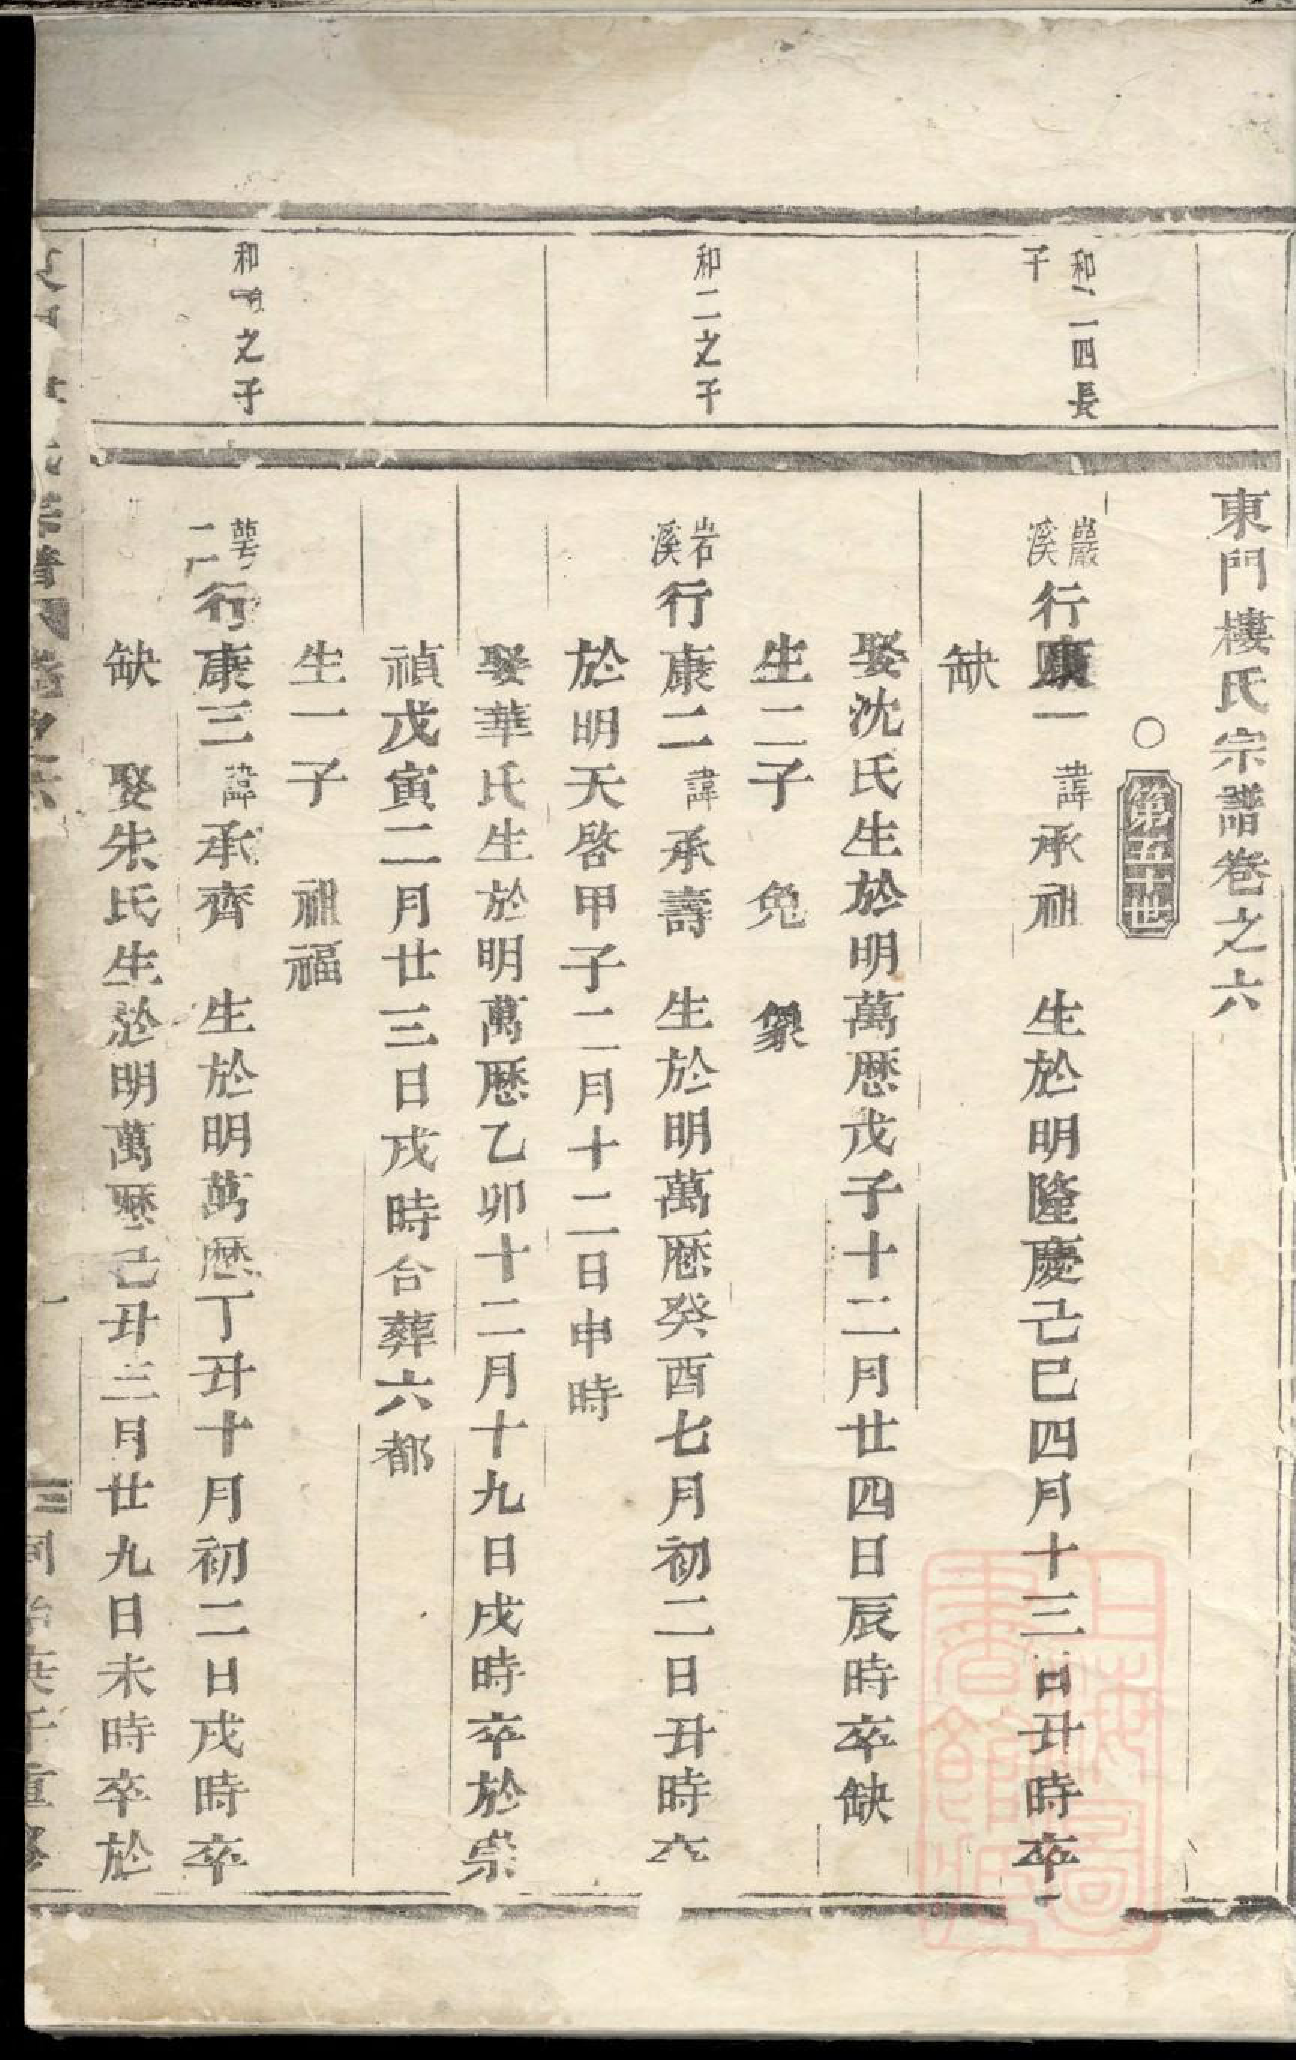 東門樓氏宗譜卷之六
第五世
和一四長
子
巖溪行康一諱承祖　生於明隆慶己巳四月十三日丑時卒
缺
娶沈氏生於明萬曆戊子十二月廿四日辰時卒缺
生二子　兔　象
和二之子
岩溪行康二諱承壽　生於明萬曆癸酉七月初二日丑時卒
於明天啓甲子二月十二日申時
娶華氏生於明萬曆乙卯十二月十九日戌時卒於崇
禎戊寅二月廿三日戌時合葬六都
生一子　祖福
之子
二行康三諱承齊　生於明萬曆丁丑十月初二日戌時卒
缺　娶朱氏生於明萬曆己丑三月廿九日未時卒於
上海圖書館藏